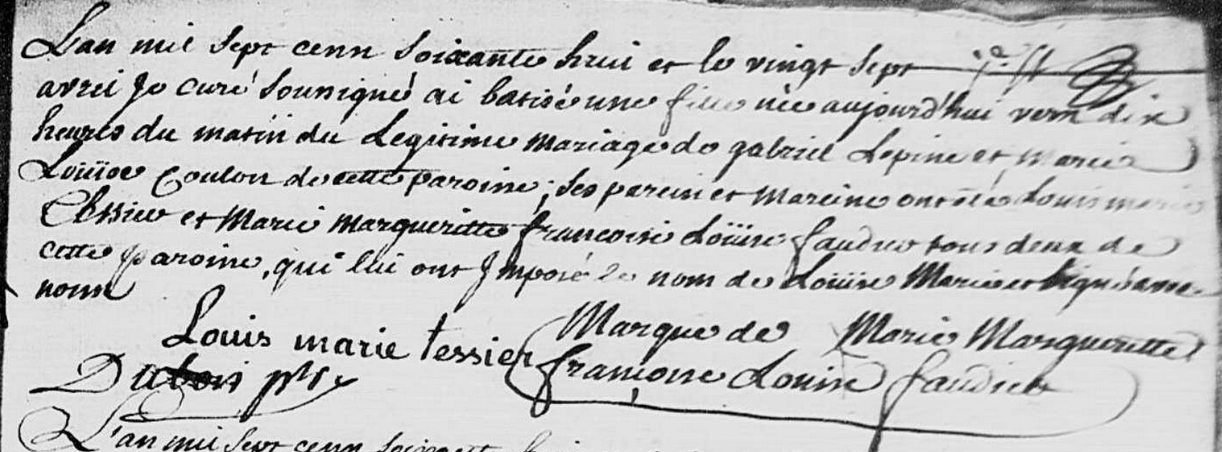 L'an mil sept cenn soixante huit et le vingt sept
avril Je curé sousigné ai batisé une fille née aujourd'hui vern dix
heures du matin du Legitime mariage de gabriel Lepine et, marie
Loüise Coulon de cette paroine; ses parein et mareine ont été Louis marie
tessier et Marie Margueritte francoise Loüise faudier tous deux de
cette paroine, qui lui ont Jmposé le nom de Loüise Marie et signé avec
nous
Louis marie tessier Marque de Marie Margueritte
Dubois ptre françoise Louise faudier
L'an mil sept cenn soixante